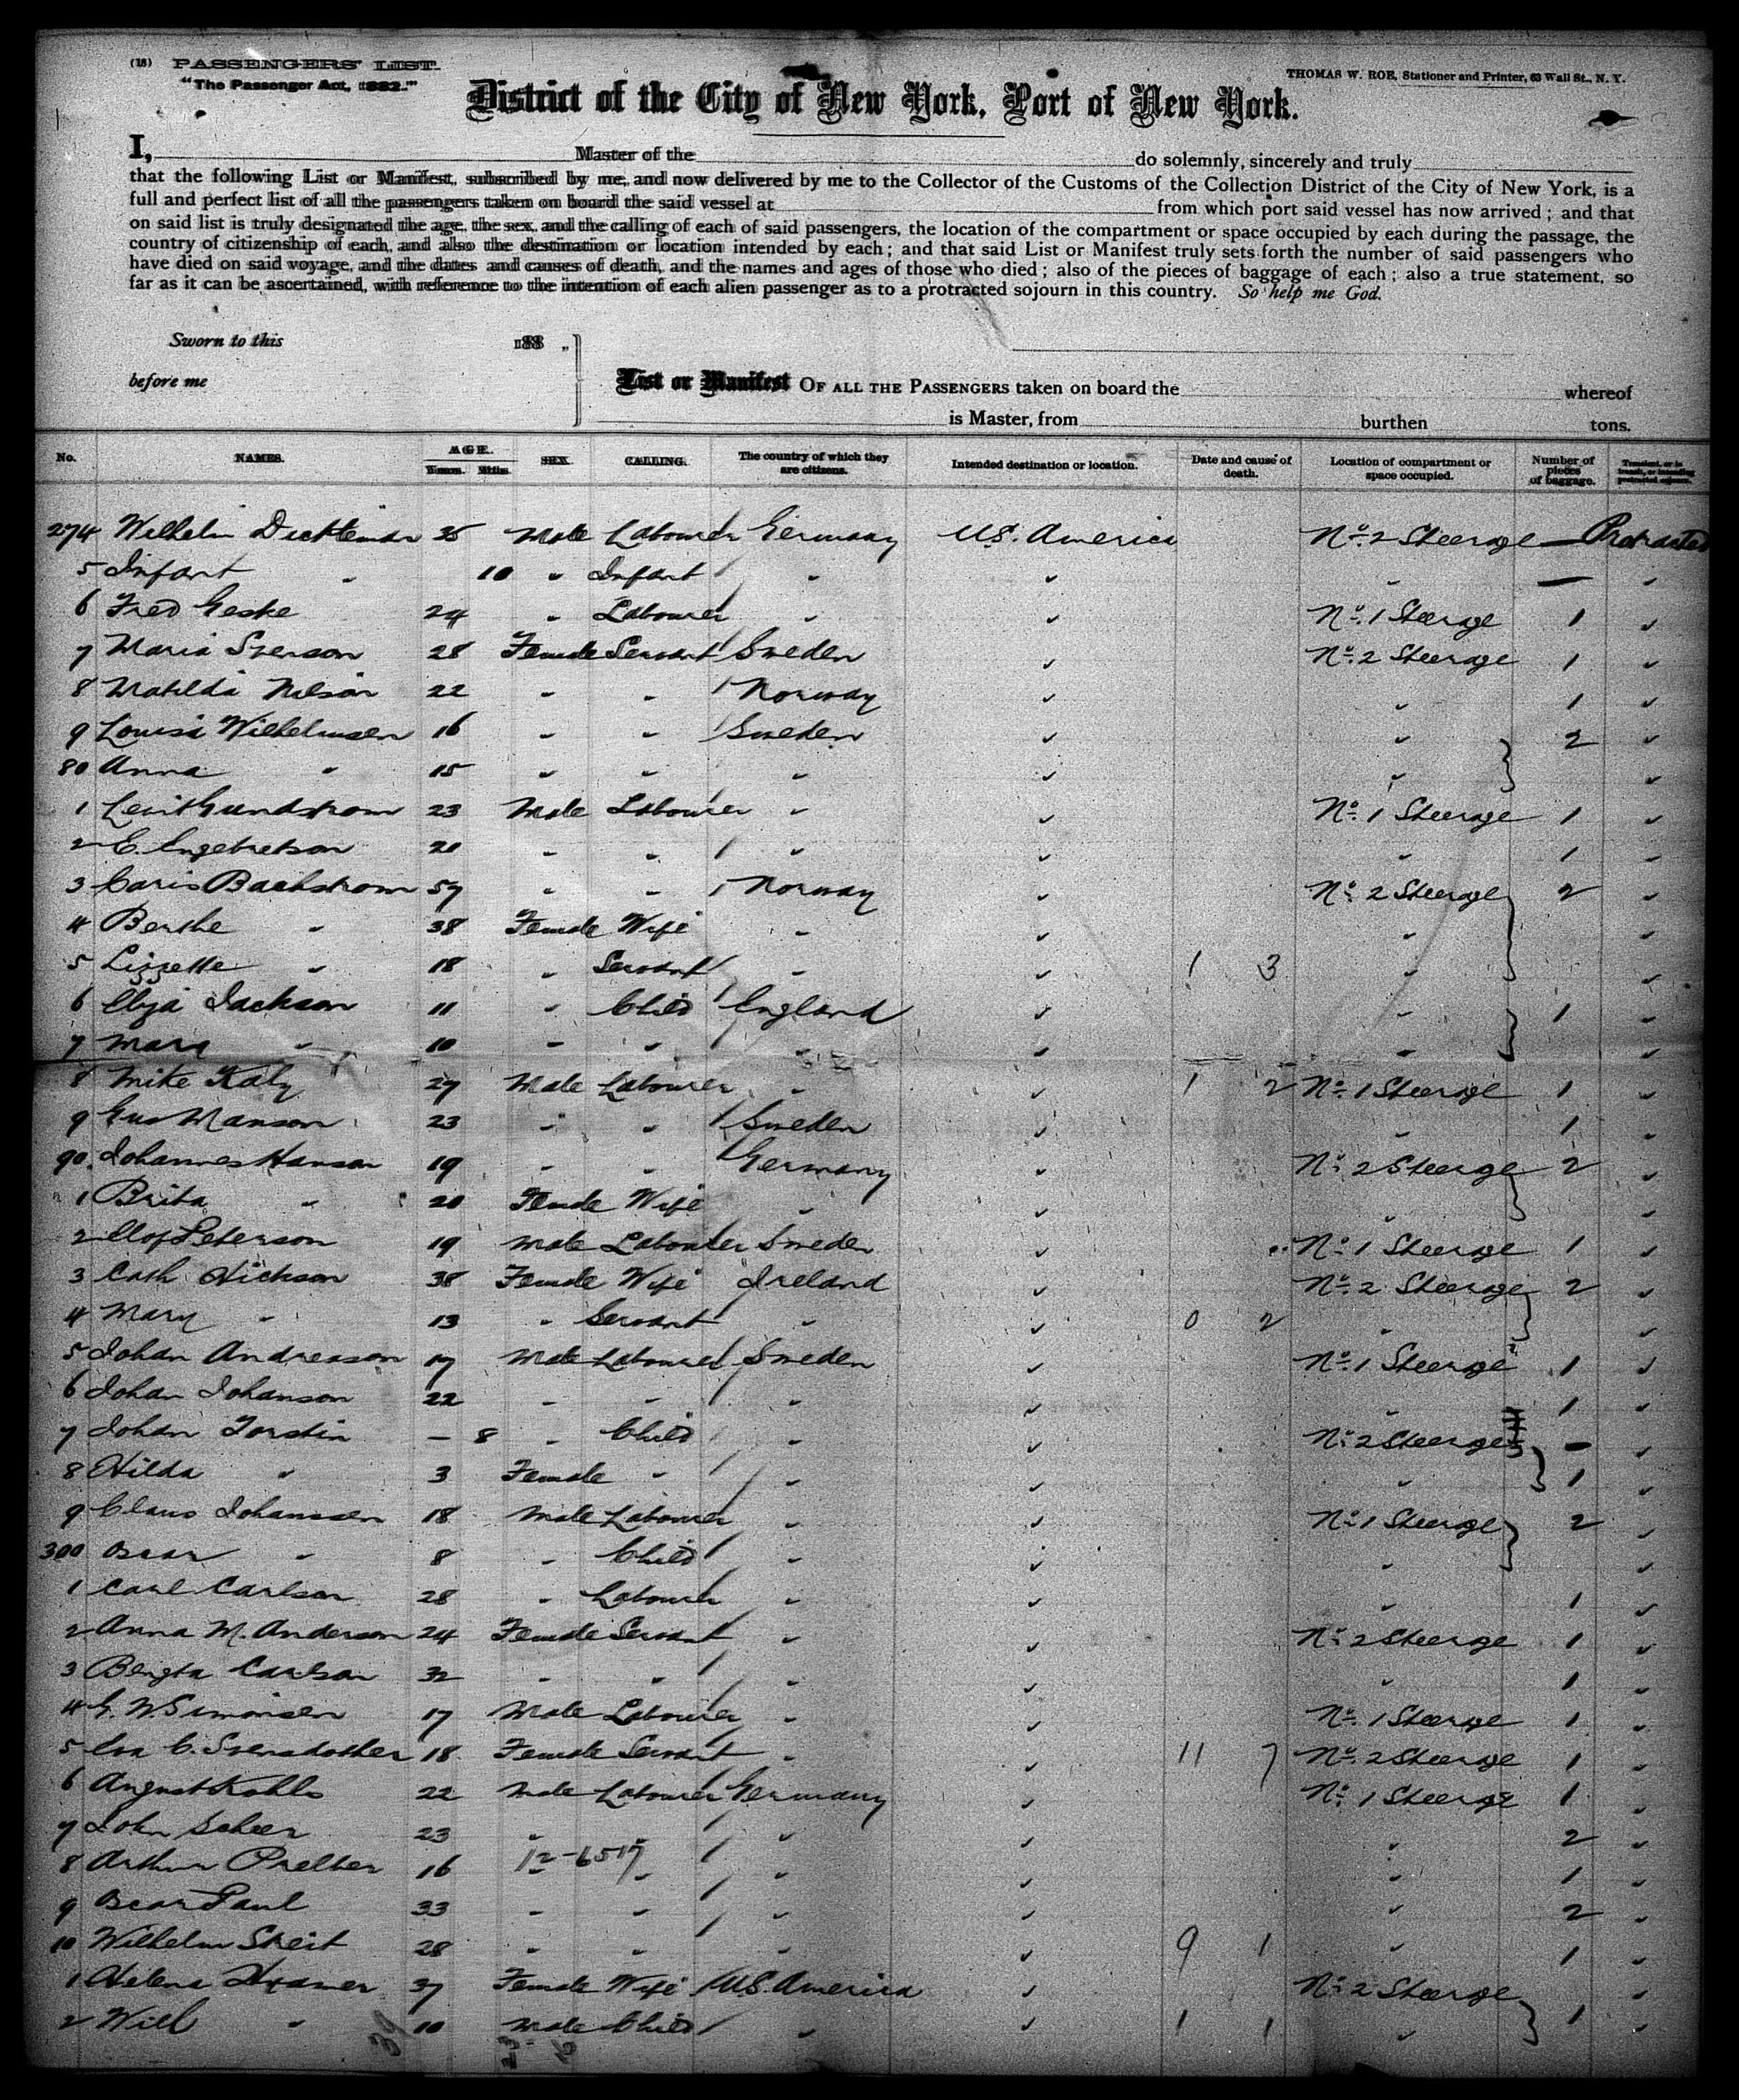 (18) PASSENGERS' LIST.
"The Passenger Act, 1882."
THOMAS W. ROE, Stationer and Printer, 63 Wall St., N. Y.
District of the City of New York, Port of New York.
I, Master of the do solemnly, sincerely and truly
that the following List or Manifest, subscribed by me, and now delivered by me to the Collector of the Customs of the Collection District of the City of New York, is a
full and perfect list of all the passengers taken on board the said vessel at from which port said vessel has now arrived; and that
on said list is truly designated the age, the sex, and the calling of each of said passengers, the location of the compartment or space occupied by each during the passage, the
country of citizenship of each, and also the destination or location intended by each; and that said List or Manifest truly sets forth the number of said passengers who
have died on said voyage, and the dates and causes of death, and the names and ages of those who died; also of the pieces of baggage of each; also a true statement, so
far as it can be ascertained, with reference to the intention of each alien passenger as to a protracted sojourn in this country. So help me God.
Sworn to this 188 ,,
before me
List or Manifest OF ALL THE PASSENGERS taken on board the whereof
is Master, from burthen tons.
No. NAMES. AGE. Years. Mths. SEX. CALLING. The country of which they are citizens. Intended destination or location. Date and cause of death. Location of compartment or space occupied. Number of pieces of baggage. Transient, or in transit, or intending protracted sojourn.
274 Wilhelm 35 Male Labourer Germany U.S. America No. 2 Steerage — Protracted
5 Infant " 10 " Infant " " " — "
6 Fred Geske 24 " Labourer " " No. 1 Steerage 1 "
7 Maria Svenson 28 Female Servant Sweden " No. 2 Steerage 1 "
8 Matilda Nelson 22 " " Norway " " 1 "
9 Louisa Wilhelmsen 16 " " Sweden " " 2 "
80 Anna " 15 " " " " " "
1 Levi Gundstrom 23 Male Labourer " " No. 1 Steerage 1 "
2 E. Engebretson 20 " " " " " 1 "
3 Caris Backstrom 57 " " Norway " No. 2 Steerage 2 "
4 Berthe " 38 Female Wife " " " "
5 Lizzette " 18 " Servant " " 1 3 " "
6 Jackson 11 " Child England " " 1 "
7 Mary " 10 " " " " " "
8 Mike Katy 27 Male Labourer " " 1 2 No. 1 Steerage 1 "
9 Gus Manson 23 " " Sweden " " 1 "
90 Johannes Hanson 19 " " Germany " No. 2 Steerage 2 "
1 Brita " 20 Female Wife " " " "
2 Olof Peterson 19 Male Labourer Sweden " No. 1 Steerage 1 "
3 Cath Hickson 38 Female Wife Ireland " No. 2 Steerage 2 "
4 Mary " 13 " Servant " " 0 2 " "
5 Johan Andreason 17 Male Labourer Sweden " No. 1 Steerage 1 "
6 Johan Johanson 22 " " " " " 1 "
7 Johan Torstin — 8 " Child " " No. 2 Steerage — "
8 Hilda " 3 Female " " " " 1 "
9 Claus Johanssen 18 Male Labourer " " No. 1 Steerage 2 "
300 Oscar " 8 " Child " " " "
1 Carl Carlson 28 " Labourer " " " 1 "
2 Anna M. Anderson 24 Female Servant " " No. 2 Steerage 1 "
3 Bengta Carlson 32 " " " " " 1 "
4 G. W. Simonsen 17 Male Labourer " " No. 1 Steerage 1 "
5 Eva C. Svensdotter 18 Female Servant " " 11 7 No. 2 Steerage 1 "
6 August Kohls 22 Male Labourer Germany " No. 1 Steerage 1 "
7 John Scheer 23 " " " " " 2 "
12-6517
8 Arthur Prelber 16 " " " " " 1 "
9 Oscar Paul 33 " " " " " 2 "
10 Wilhelm Streit 28 " " " " 9 1 " 1 "
1 Helena Kramer 37 Female Wife U.S. America " No. 2 Steerage "
2 Will " 10 Male Child " " 1 1 " 1 "
39
23 16